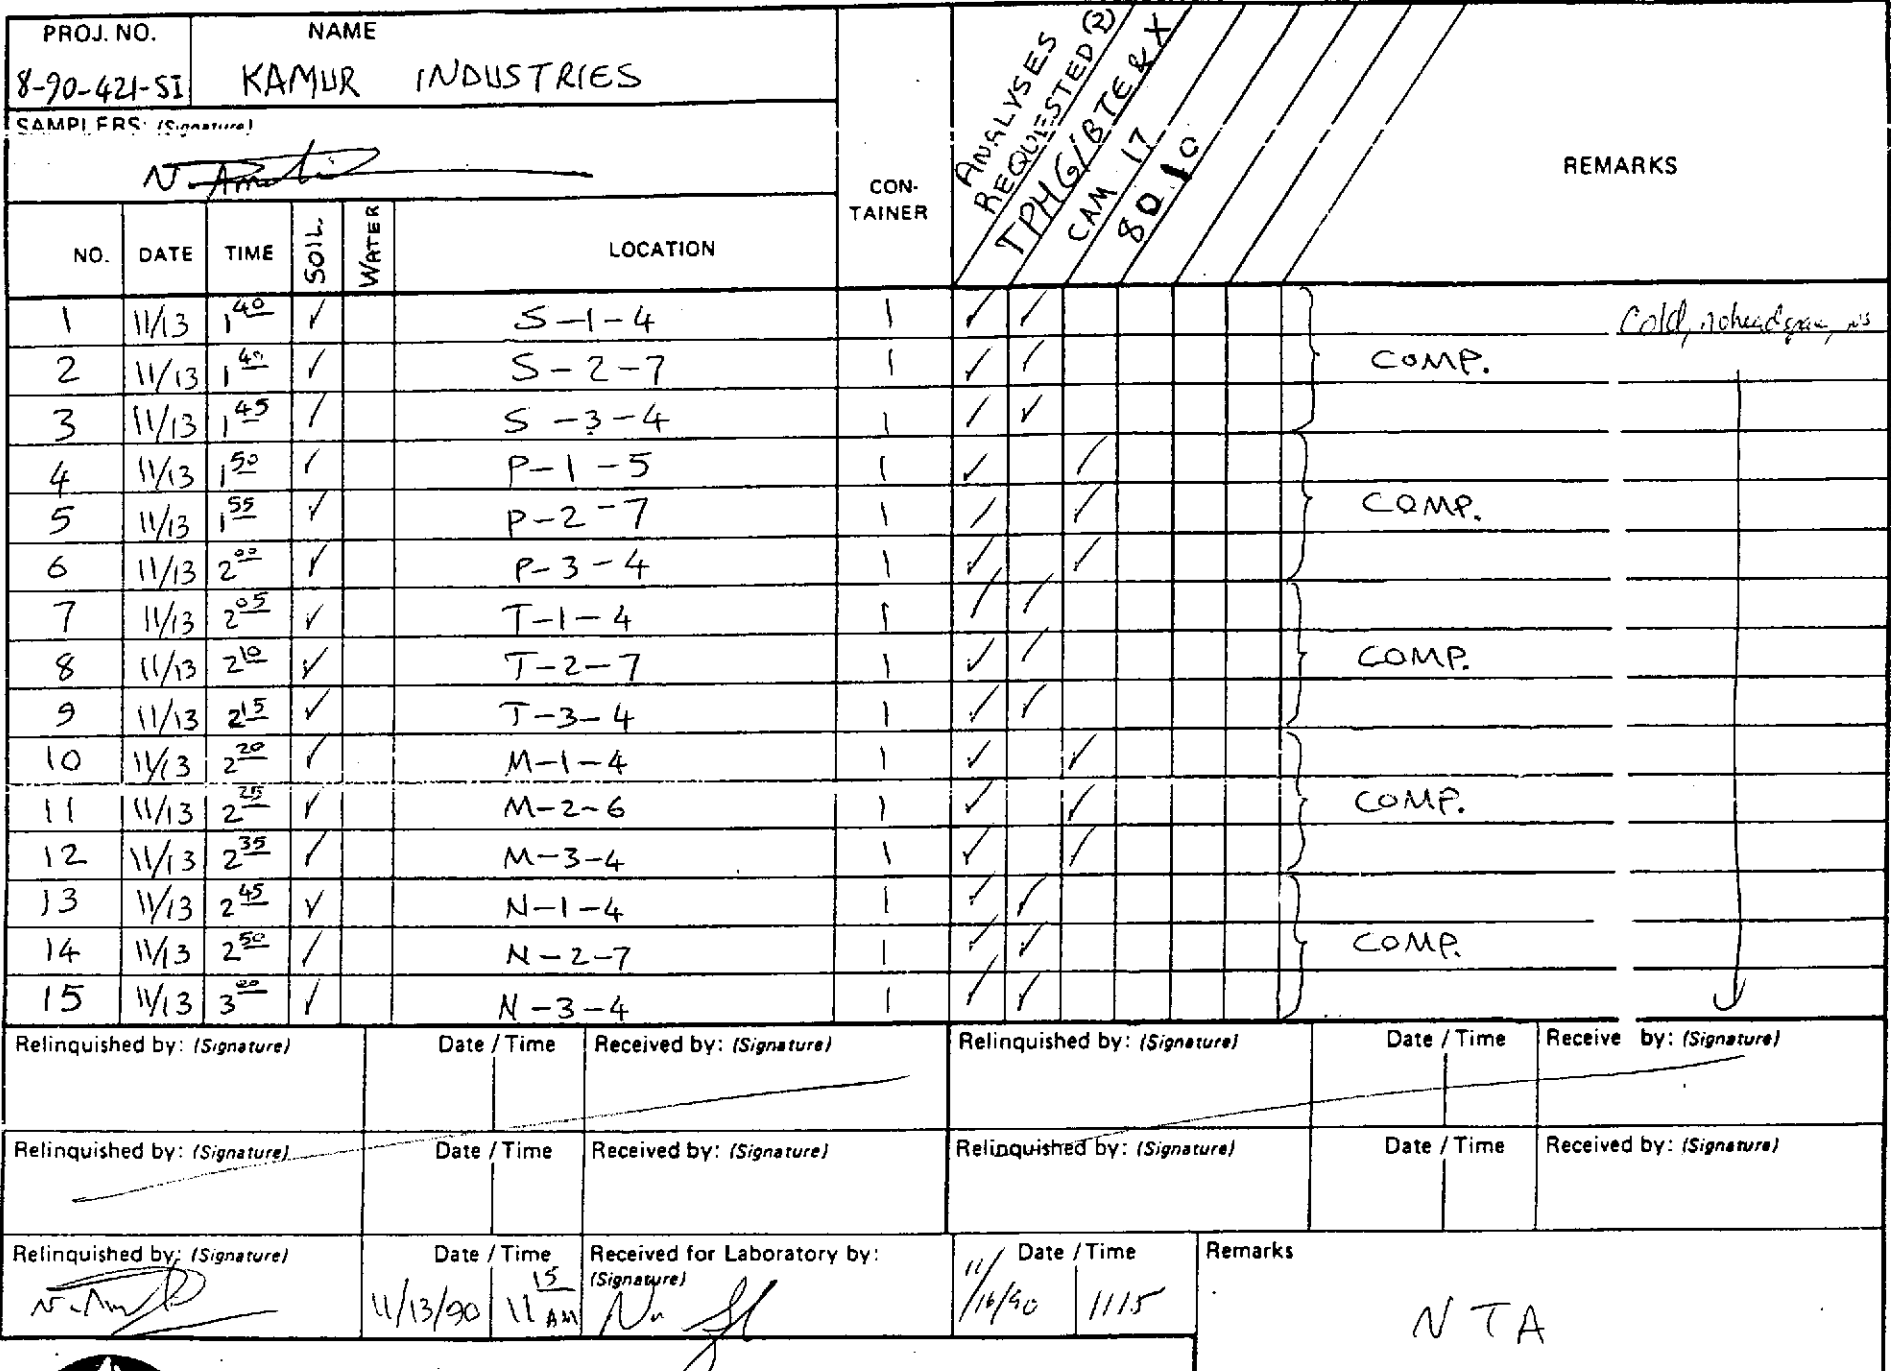 PROJ. NO. NAME
8-90-421-SI KAMUR INDUSTRIES
SAMPLERS: (Signature)
CON-
TAINER
ANALYSES
REQUESTED (2)
TPHG/BTE&X
CAM 17
8010
REMARKS
NO. DATE TIME SOIL WATER LOCATION
1 11/13 1 40 ✓ S-1-4 1 ✓ ✓ Cold,
2 11/13 1 40 ✓ S-2-7 1 ✓ ✓ COMP.
3 11/13 1 45 ✓ S-3-4 1 ✓ ✓
4 11/13 1 50 ✓ P-1-5 1 ✓ ✓
5 11/13 1 55 ✓ P-2-7 1 ✓ ✓ COMP.
6 11/13 2 00 ✓ P-3-4 1 ✓ ✓
7 11/13 2 05 ✓ T-1-4 1 ✓ ✓
8 11/13 2 10 ✓ T-2-7 1 ✓ ✓ COMP.
9 11/13 2 15 ✓ T-3-4 1 ✓ ✓
10 11/13 2 20 ✓ M-1-4 1 ✓ ✓
11 11/13 2 25 ✓ M-2-6 1 ✓ ✓ COMP.
12 11/13 2 35 ✓ M-3-4 1 ✓ ✓
13 11/13 2 45 ✓ N-1-4 1 ✓ ✓
14 11/13 2 50 ✓ N-2-7 1 ✓ ✓ COMP.
15 11/13 3 00 ✓ N-3-4 1 ✓ ✓
Relinquished by: (Signature) Date / Time Received by: (Signature) Relinquished by: (Signature) Date / Time Receive by: (Signature)
Relinquished by: (Signature) Date / Time Received by: (Signature) Relinquished by: (Signature) Date / Time Received by: (Signature)
Relinquished by: (Signature) Date / Time Received for Laboratory by: Date / Time Remarks
(Signature)
11/13/90 11 15 AM 11/16/90 1115
NTA